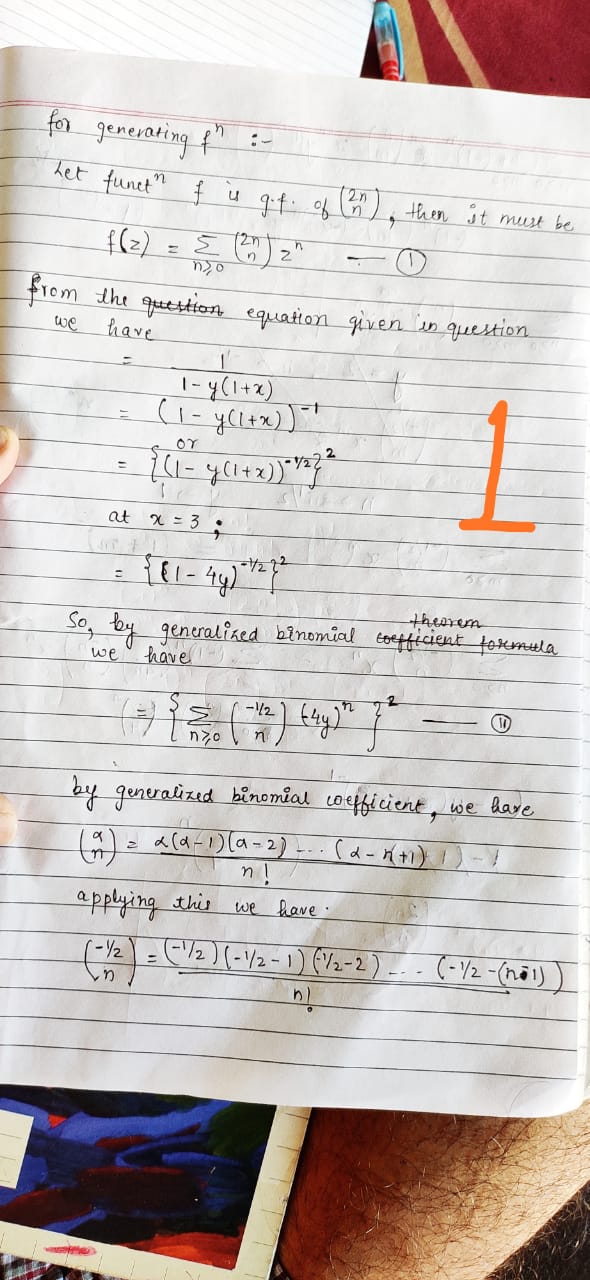 for generating fⁿ :-
Let functⁿ f is g.f. of (2n n), then it must be
f(z) = Σ n≥0 (2n n) zⁿ — ①
from the question equation given in question
we have
= 1 / 1 - y(1+x)
= (1 - y(1+x))⁻¹
or
= {(1 - y(1+x))^-1/2}²
1
at x = 3 ;
= {(1 - 4y)^-1/2}²
So, by generalized binomial coefficient formula theorem
we have
(=) { Σ n≥0 (-1/2 n) (-4y)ⁿ }² — ⑪
by generalized binomial coefficient, we have
(α n) = α(α-1)(α-2) ... (α-n+1) / n!
applying this we have.
(-1/2 n) = (-1/2)(-1/2-1)(-1/2-2) ... (-1/2-(n-1)) / n!